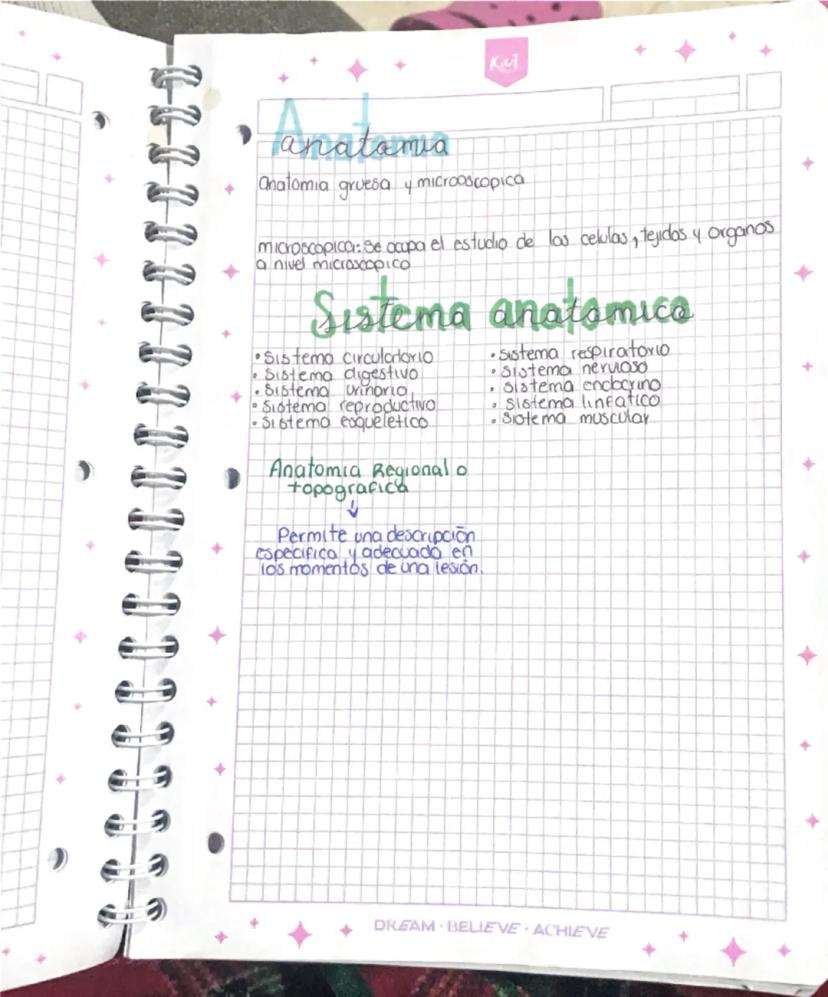 Kiut
Anatomia
anatomia
Anatomia gruesa y microoscopica
microscopica: Se ocupa el estudio de las celulas, tejidos y organos
a nivel microscopico
Sistema anatomico
• Sistema circulatorio
• Sistema digestivo
• Sistema urinario
• Sistema reproductivo
• Sistema esqueletico
• sistema respiratorio
• sistema nervioso
• sistema endocrino
• sistema linfatico
• Sistema muscular
Anatomia Regional o
topografica
↓
Permite una descripción
especifica y adecuada en
los momentos de una lesión.
DREAM · BELIEVE · ACHIEVE